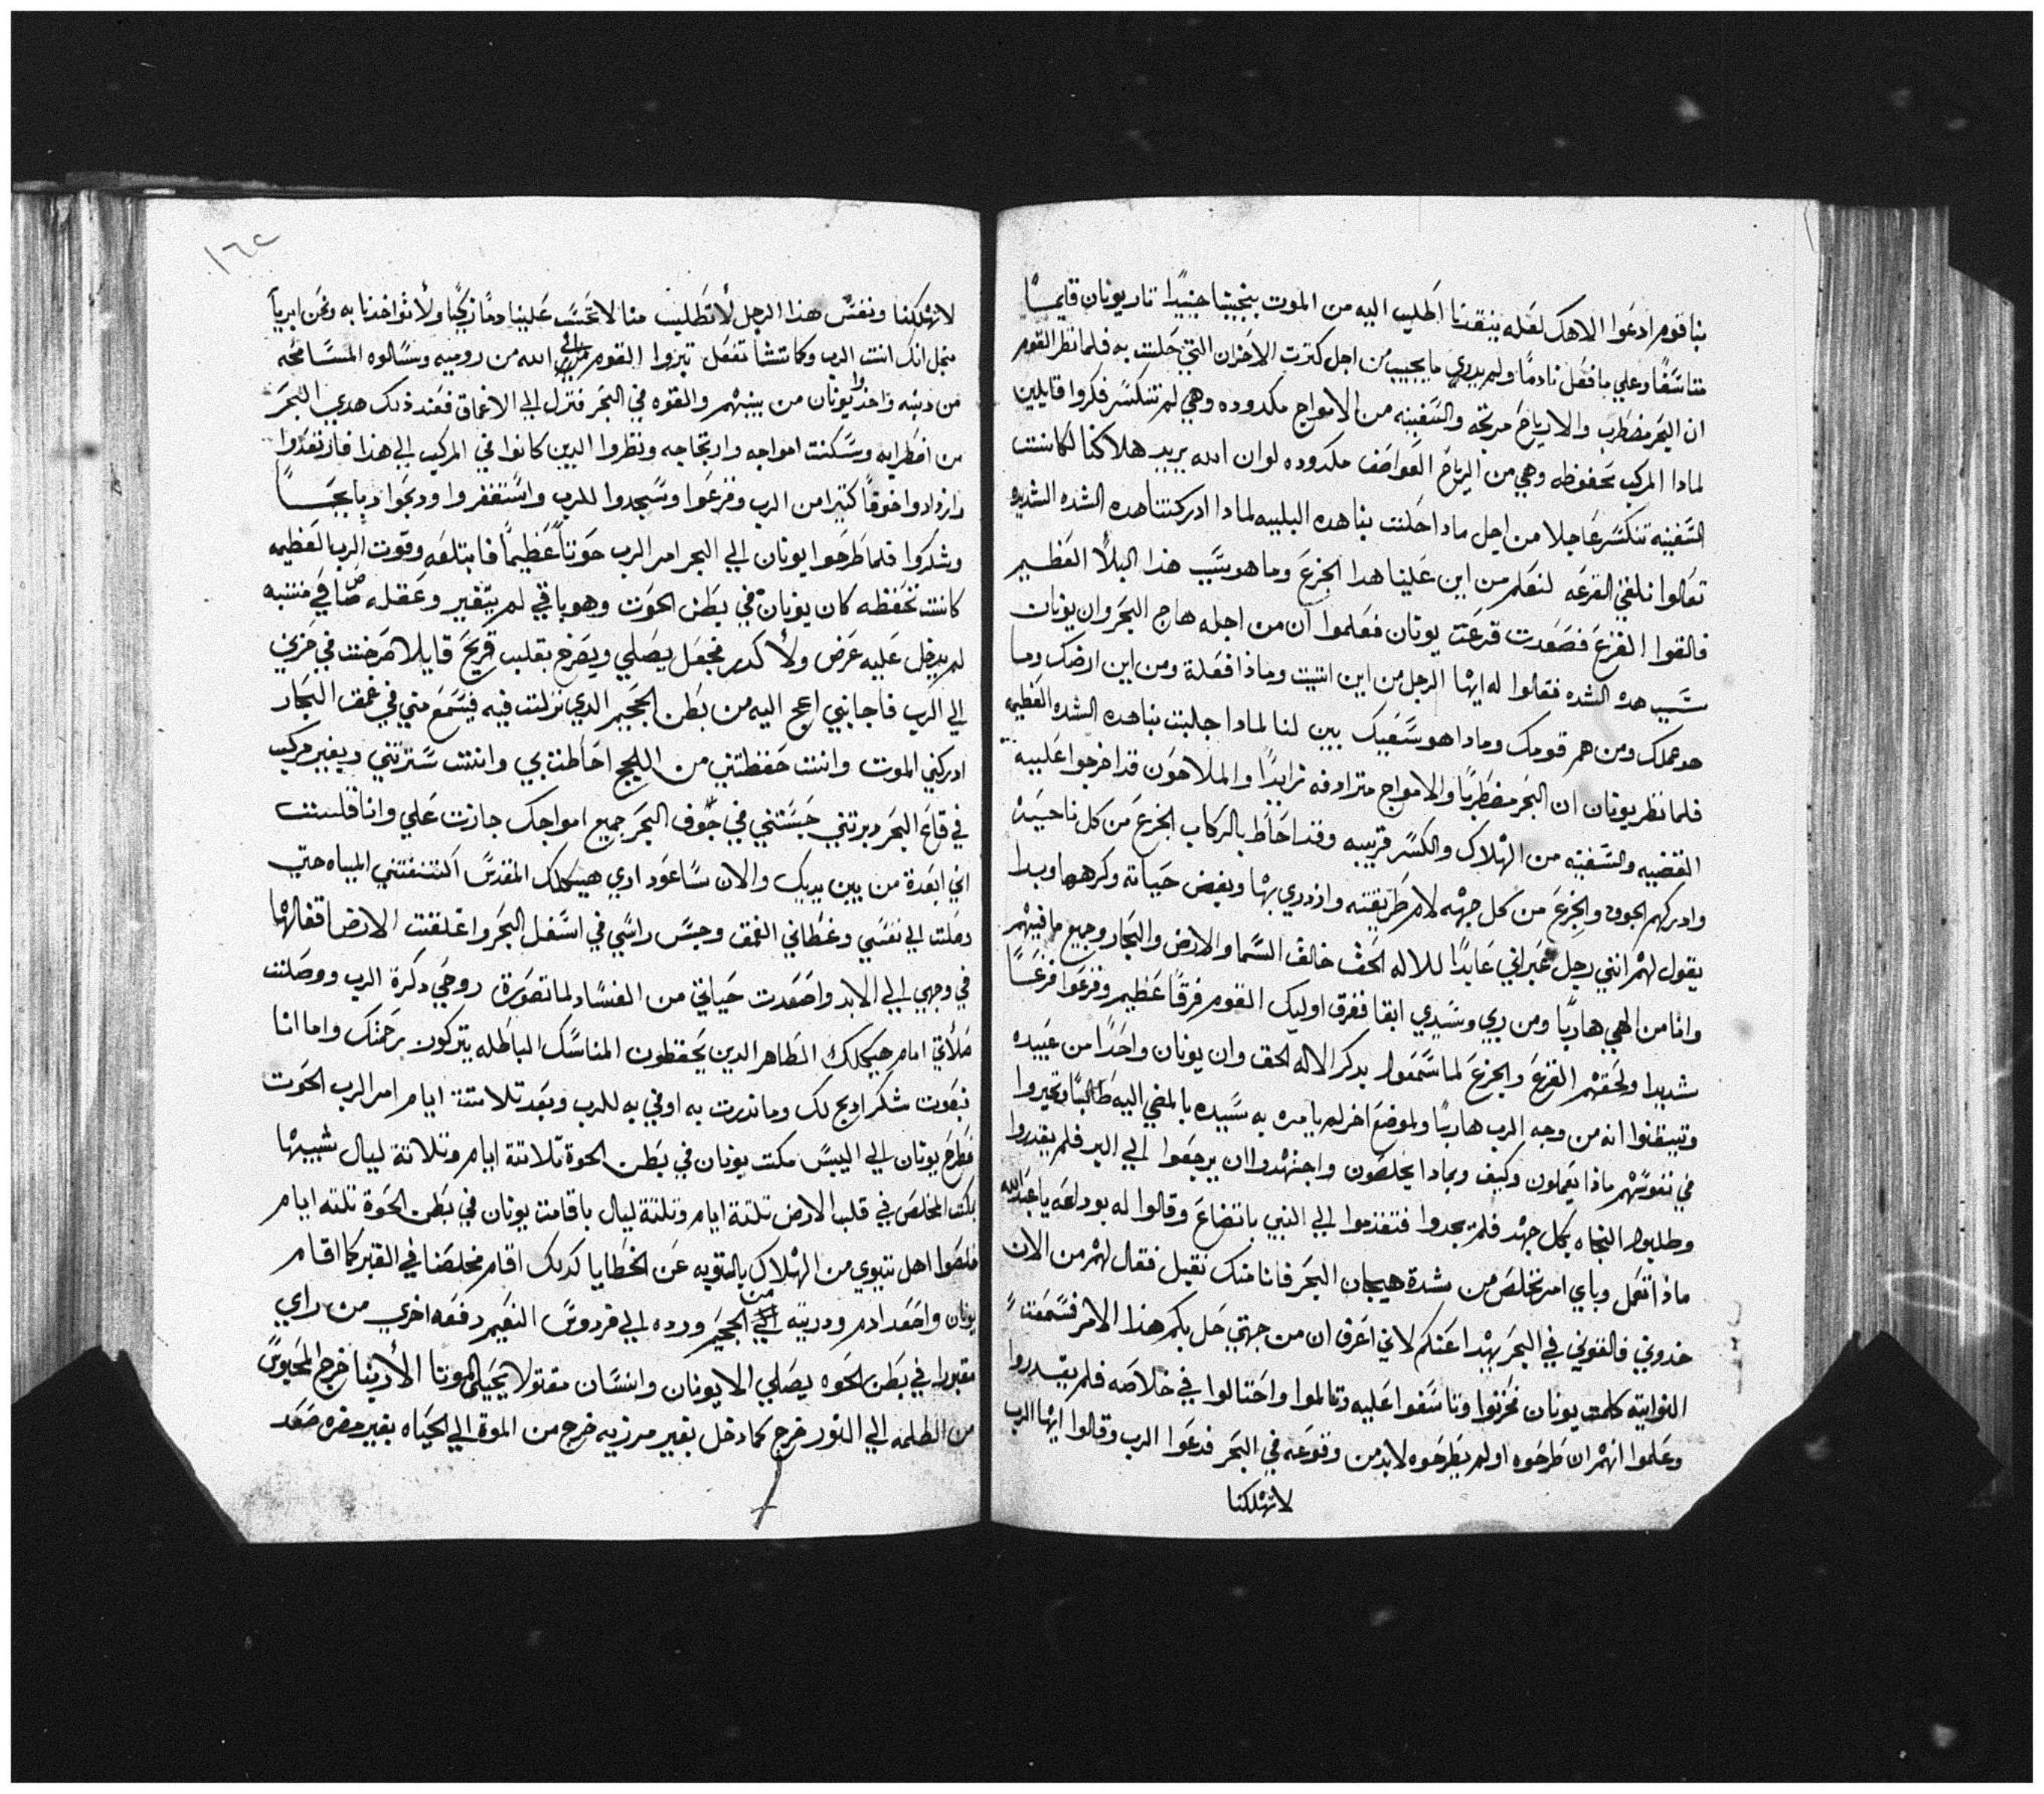 بنا قوم ادعوا الاهك لعله ينقدنا اطليب اليه من الموت ينجينا جنيدًا تار يونان قايمًا
متاسفًا وعلي ما فعل نادمًا ولم يدري ما يجيب من اجل كترت الاحزان التي حلت به فلما نظر القوم
ان البحر مضطرب والارياح مرتجه والسفينه من الامواج مكدوده وهي لم تنكسر فكروا قايلين
لمادا المركب محفوظه وهي من الرياح العواصف مكدوده لو ان الله يريد هلاكنا لكانت
السفينه تنكسر عاجلا من اجل مادا حلت بنا هده البليه لمادا ادركتنا هده الشده الشديده
تعالوا نلقي القرعه لنعلم من اين علينا هدا الجزع وما هو سبب هذا البلاً العظيم
فالقوا القرع فصعدت قرعت يونان فعلموا ان من اجله هاج البحر وان يونان
سبب هده الشده فقالوا له ايها الرجل من اين اتيت وماذا فعلة ومن اين ارضك وما
هو عملك ومن هم قومك ومادا هو سعيك بين لنا لمادا جلبت بنا هده الشده العظيمه
فلما نظر يونان ان البحر مضطربًا والامواج مترادفه تزايدًا والملاحون قد اخرجوا عليه
القضيه والسفينه من الهلاك والكسر قريبه وقد احاط بالركاب الجزع من كل ناحيه
وادركهم الخوف والجزع من كل جهه لام طريقته وازدري بها وبغض حياته وكرهها وبدا
يقول لهم انني رجل عبراني عابدًا للاله الحق خالق السما والارض والبحار وجميع ما فيهم
وانا من الهي هاربًا ومن ربي وسيدي ابقا ففرق اوليك القوم فرقًا عظيم وفزعوا فزعًا
شديدا ولحقهم الفزع والجزع لما سمعوا بدكر الاله الحق وان يونان واحدًا من عبيده
وتيقنوا انه من وجه الرب هاربًا ولموضع اخر لم يامره به سيده بالمضي اليه طالبًا وتحيروا
في نفوسهم ماذا يعملون وكيف وبمادا يخلصون واجتهدوا ان يرجعوا الي البر فلم يقدروا
وطلبوا النجاه بكل جهد فلم يجدوا فتقدموا الي النبي باتضاع وقالوا له بوداعه يا عبد الله
ماذا نعمل وباي امر نخلص من شدة هيجان البحر فاننا منك نقبل فقال لهم من الان
خدوني فالقوني في البحر يهدا عنكم لاني اعرف ان من جهتي حل بكم هذا الامر فسمعت
النواتيه كلمت يونان فحزنوا وتاسفوا عليه وتالموا واحتالوا في خلاصه فلم يقدروا
وعلموا انهم ان طرحوه او لم يطرحوه لابد من وقوعه في البحر فدعوا الرب وقالوا ايها الرب
لا تهلكنا
١٦٢
لا تهلكنا ونفس هذا الرجل لا تطليب منا لا تحسب علينا دمًا زكيًا ولا تؤاخدنا به ونحن ابرياً
منجل انك انت الرب وكما تشا تفعل تبروا القوم الي الله من روميه وسالوه المسامحه
من دنبه واخدوا يونان من بينهم والقوه في البحر فنزل الي الاعماق فعند ذلك هدي البحر
من اضطرابه وسكنت امواجه وارتجاجه ونظروا الدين كانوا في المركب الي هذا فارتعدوا
وازدادوا خوفًا كتيرا من الرب وفزعوا وسجدوا للرب واستغفروا ودبحوا دبايحًا
وشكروا فلما طرحوا يونان الي البحر امر الرب حوتاً عظيمًا فابتلعه وقوت الرب العظيمه
كانت تحفظه كان يونان في بطن الحوت وهو باقي لم يتغير وعقله صافي متنبه
لم يدخل عليه عرض ولا كدر فجعل يصلي ويصرخ بقلب قريح قايلا صرخت في حزني
الي الرب فاجابني اعج اليه من بطن الجحيم الدي نزلت فيه فيسمع مني في عمق البحار
ادركني الموت وانت حفظتني من اللجج احاطت بي وانت سترتني وبغير مركب
في قاع البحر دبرتني حبستني في جوف البحر جميع امواجك جازت علي وانا فلست
اني ابعدة من بين يديك والان ساعود اري هيكلك المقدس اكتنفتني المياه حتي
دخلت الي نفسي وغطاني العمق وحبس راسي في اسفل البحر واغلقت الارض اقفالها
في وجهي الي الابد واصعدت حياتي من الفساد لما تصورة روحي دكرة الرب ووصلت
صلاتي امام هيكلك الطاهر الدين يحفظون المناسك الباطله يتركون رحمتك واما انا
فبصوت شكر ادبح لك وما ندرت به اوفي به للرب وبعد تلاتة ايام امر الرب الحوت
فطرح يونان الي اليبس مكت يونان في بطن الحوة تلاتة ايام وتلاتة ليال شبيهًا
بمكت المخلص في قلب الارض تلتة ايام وتلتة ليال باقامت يونان في بطن الحوة تلته ايام
خلصوا اهل نينوي من الهلاك بالتوبه عن الخطايا كدلك اقام مخلصنا في القبر كما اقام
يونان واصعد ادم ودريته من الجحيم ورده الي فردوس النعيم دفعه اخري من راي
مقبورا في بطن الحوه يصلي الا يونان وانسان مقتولا يحيي الموتا الا ربنا خرج المحبوس
من الظلمه الي النور خرج كما دخل بغير مرزيه خرج من الموة الي الحياه بغير مضره صعد